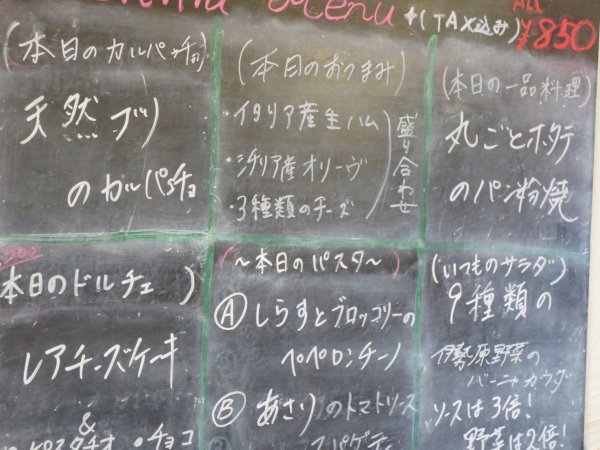 Menu
+(TAX込み)
ALL
¥850
(本日のカルパッチョ)
天然ブリ
のカルパッチョ
(本日のおつまみ)
・イタリア産生ハム
・シチリア産オリーヴ
・3種類のチーズ
盛り合わせ
(本日の一品料理)
丸ごとホタテ
のパン粉焼
本日のドルチェ)
レアチーズケーキ
&
ピスタチオ・チョコ
(~本日のパスタ~)
Ⓐ しらすとブロッコリーの
ペペロンチーノ
Ⓑ あさりのトマトソース
スパゲティ
(いつものサラダ)
9種類の
伊勢原野菜の
バーニャカウダ
ソースは3倍!
野菜は2倍!